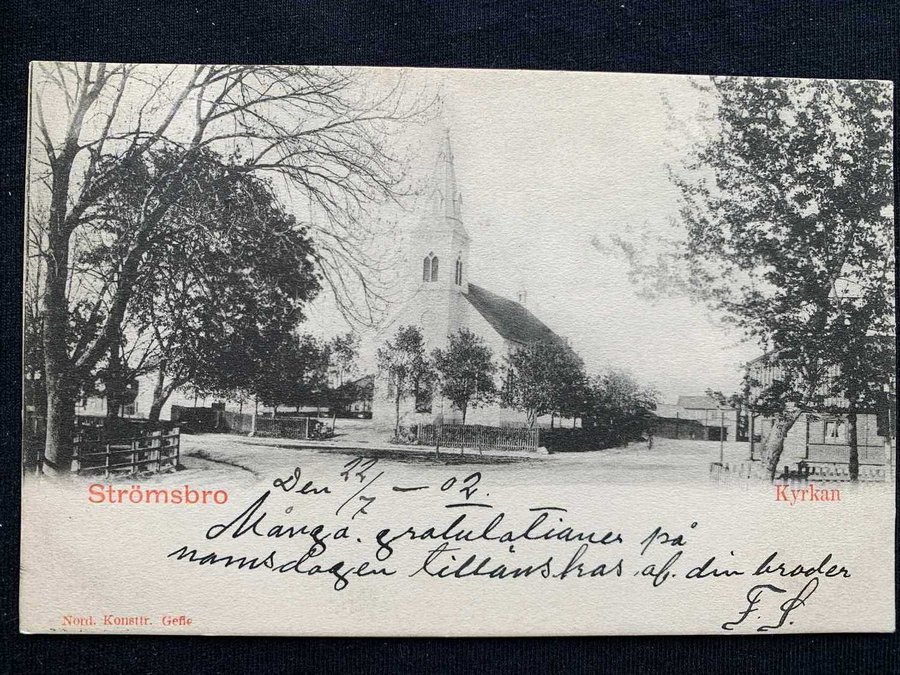 Strömsbro
Kyrkan
Den 22/7 – 02.
Många gratulationer på
namsdagen tillänskas af din broder
F. S.
Nord. Konsttr. Gefle